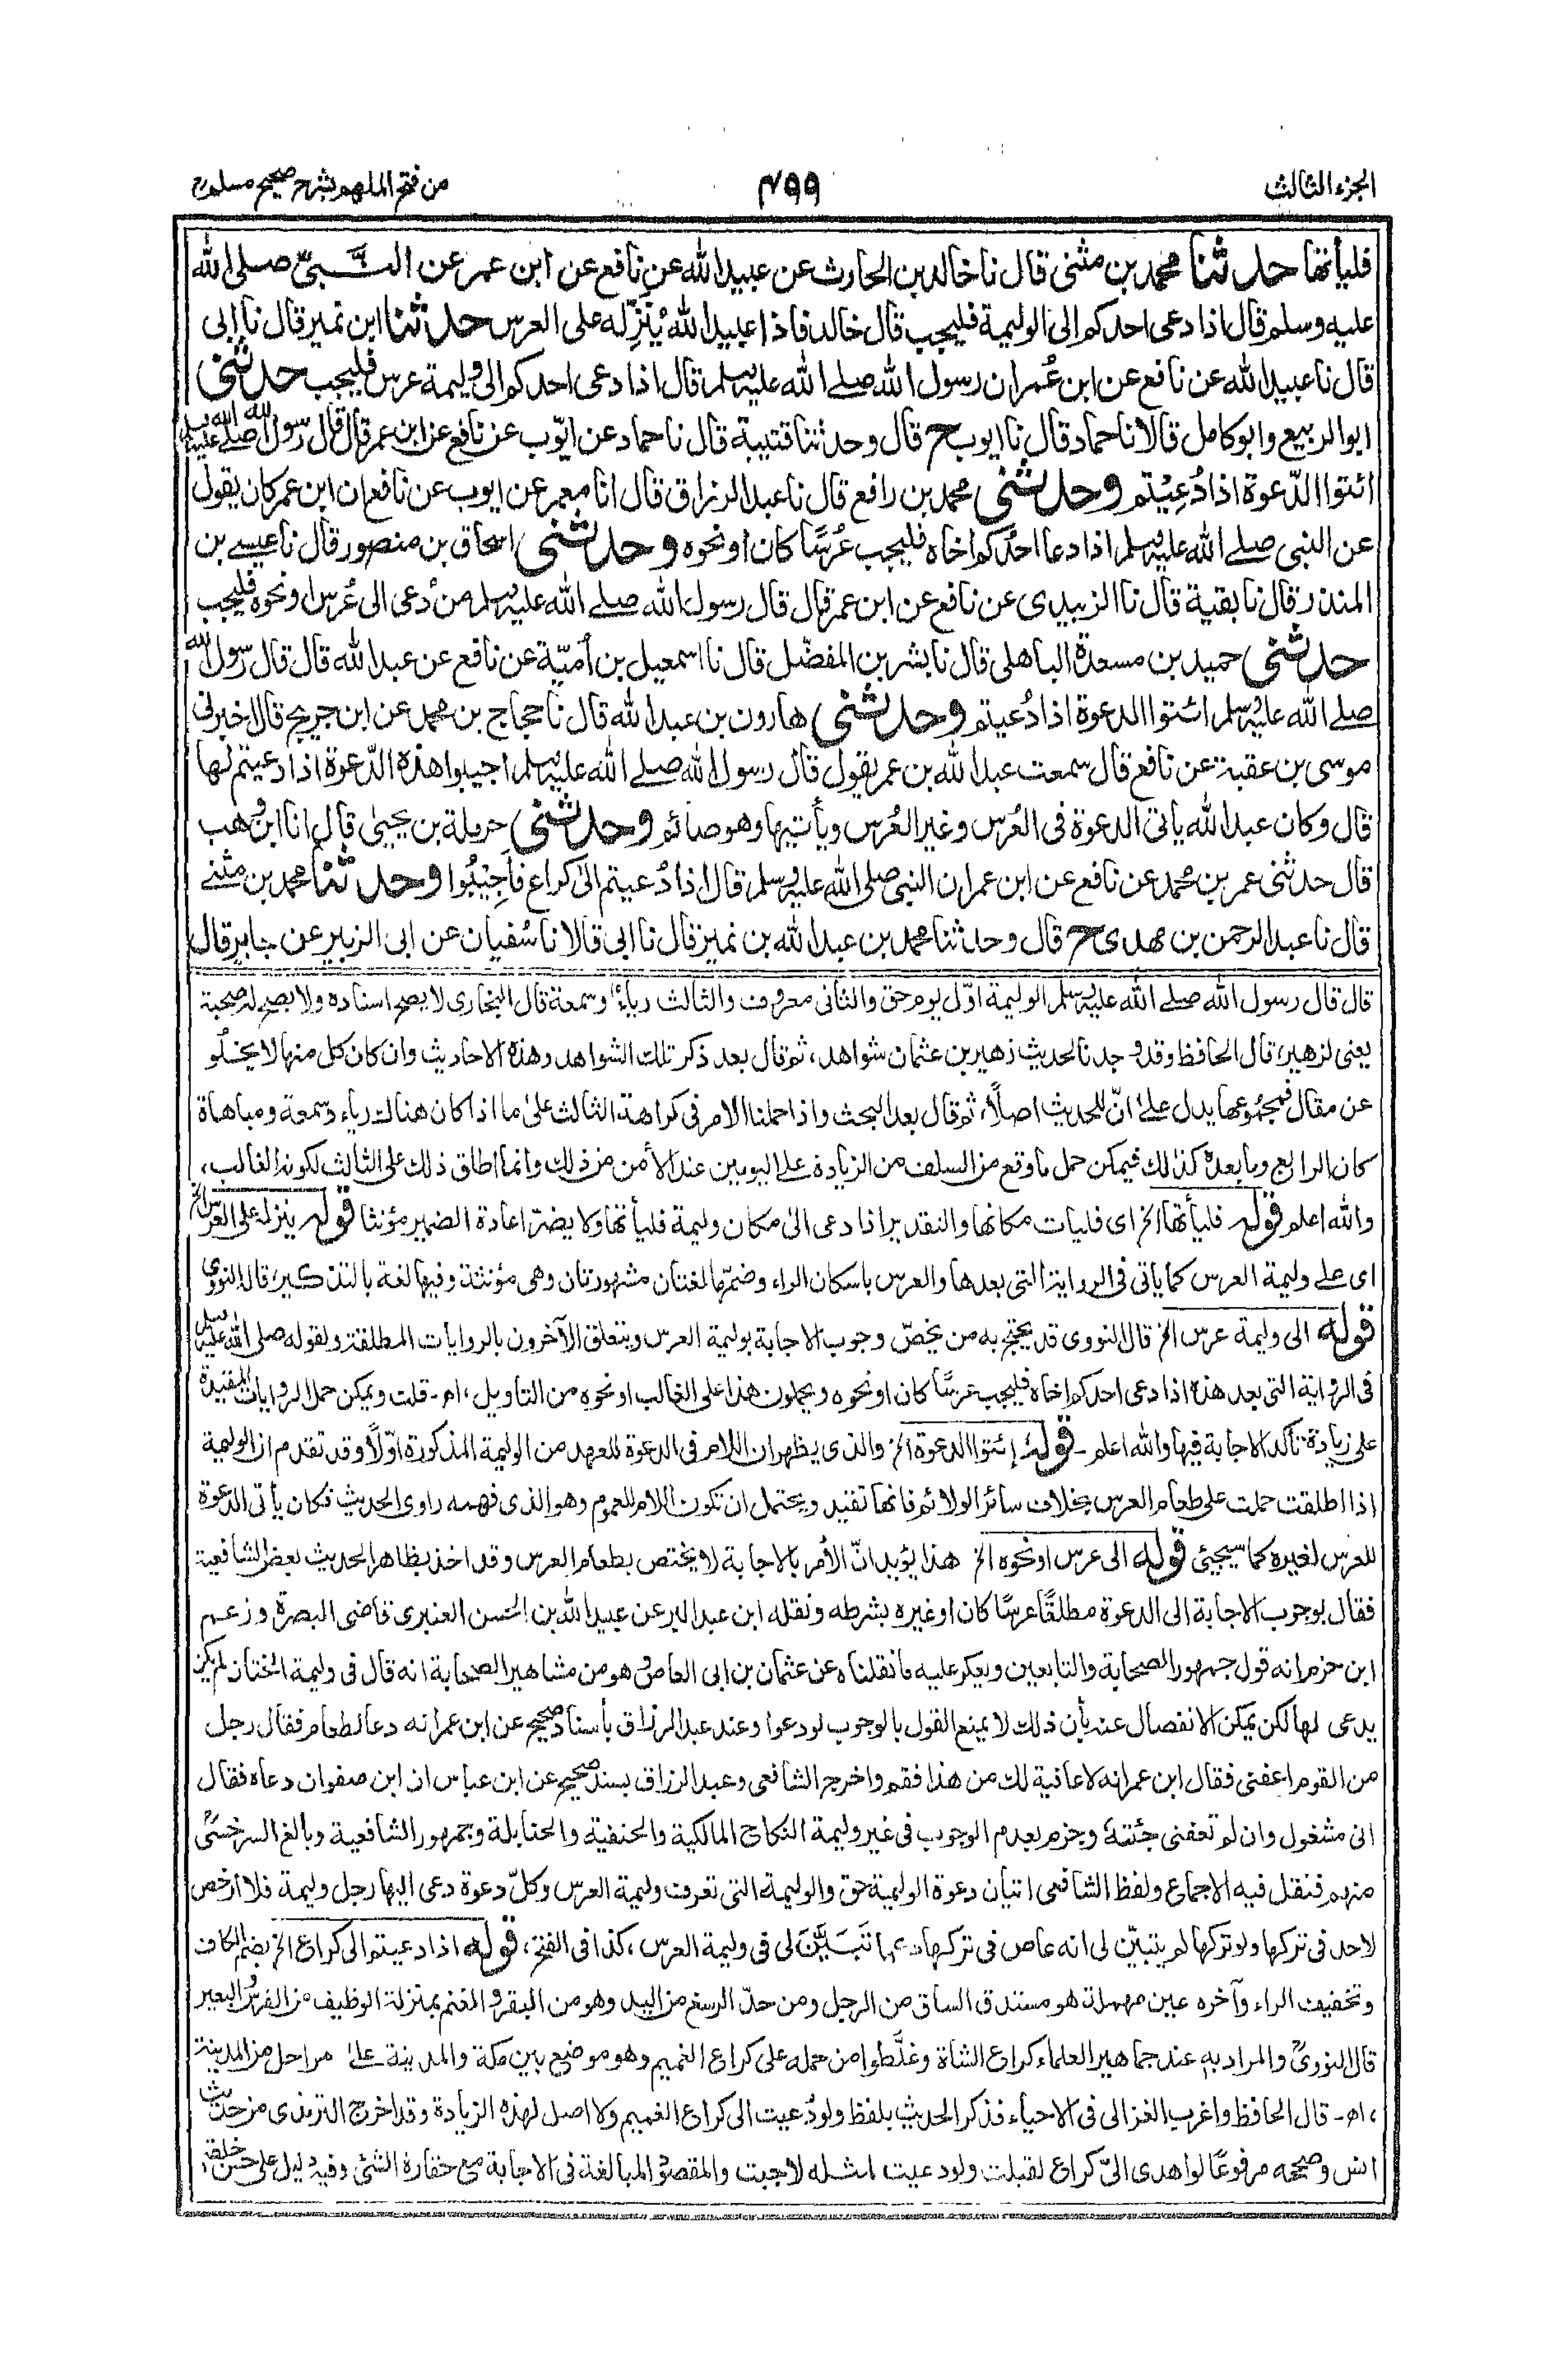 الجزء الثالث
٤٩٩
من فتح الملهم بشرح صحيح مسلم
فليأتها حدثنا محمد بن مثنى قال نا خالد بن الحارث عن عبيد الله عن نافع عن ابن عمر عن النبىّ صلى الله
عليه وسلم قال اذا دعى احدكم الى الوليمة فليجب قال خالد فاذا عبيد الله يُنَزِّله على العرس حدثنا ابن نمير قال نا ابى
قال نا عبيد الله عن نافع عن ابن عُمر ان رسول الله صلے الله عليه وسلم قال اذا دعى احدكم الى وليمة عرس فليجب حدثنى
ابو الربيع وابو كامل قالا نا حماد قال نا ايوب ح قال وحدثنا قتيبة قال نا حماد عن ايّوب عن نافع عن ابن عمر قال قال رسول الله صلے الله عليه وسلم
ائتوا الدّعوة اذا دُعِيْتم وحدثنى محمد بن رافع قال نا عبد الرزاق قال انا معمر عن ايوب عن نافع ان ابن عمر كان يقول
عن النبى صلے الله عليه وسلم اذا دعا احدُكم اخاه فليجب عُرسًا كان او نحوه وحدثنى اسحاق بن منصور قال نا عيسے بن
المنذر قال نا بقية قال نا الزبيدى عن نافع عن ابن عمر قال قال رسول الله صلے الله عليه وسلم من دُعى الى عُرس او نحوه فليجب
حدثنى حميد بن مسعدة الباهلى قال نا بشر بن المفضّل قال نا اسمعيل بن أميّة عن نافع عن عبد الله قال قال رسول الله
صلے الله عليه وسلم ائتوا الدعوة اذا دُعيتم وحدثنى هارون بن عبد الله قال نا حجاج بن محمد عن ابن جريج قال اخبرنى
موسى بن عقبة عن نافع قال سمعت عبد الله بن عمر يقول قال رسول الله صلے الله عليه وسلم اجيبوا هذه الدّعوة اذا دعيتم لها
قال وكان عبد الله ياتى الدعوة فى العُرس وغير العُرس ويأتيها وهو صائم وحدثنى حرملة بن يحيىٰ قال انا ابن وهب
قال حدثنى عمر بن محمد عن نافع عن ابن عمر ان النبى صلى الله عليه وسلم قال اذا دُعيتم الىٰ كراع فأجِيْبُوا وحدثنا محمد بن مثنے
قال نا عبد الرحمن بن مهدى ح قال وحدثنا محمد بن عبد الله بن نمير قال نا ابى قالا نا سُفيان عن ابى الزبير عن جابر قال
قال قال رسول الله صلے الله عليه وسلم الوليمة اوّل يوم حق والثانى معروف والثالث رياءً وسمعة قال البخارى لا يصح اسناده ولا يصح له صحبة
يعنى لزهير، قال الحافظ وقد وجدنا لحديث زهير بن عثمان شواهد، ثم قال بعد ذكر تلك الشواهد وهذه الاحاديث وان كان كل منها لا يخلُو
عن مقال فمجموعها يدل علىٰ انّ للحديث اصلًا، ثم قال بعد البحث واذا حملنا الامر فى كراهة الثالث علىٰ ما اذا كان هناك رياء وسمعة ومباهاة
كان الرابع وما بعده كذلك فيمكن حمل ما وقع من السلف من الزيادة على اليومين عند الأمن من ذلك وانما اطلق ذلك على الثالث لكونه الغالب،
والله اعلم قوله فليأتها الخ اى فليات مكانها والتقدير اذا دعى الىٰ مكان وليمة فليأتها ولا يضرّ اعادة الضمير مؤنثا قوله ينزله على العرس الخ
اى علے وليمة العرس كما ياتى فى الرواية التى بعدها والعرس باسكان الراء وضمّها لغتان مشهورتان وهى مؤنثة وفيها لغة بالتذكير، قاله النووى
قوله الى وليمة عرس الخ قال النووى قد يحتج به من يخصّ وجوب الاجابة بوليمة العرس ويتعلق الآخرون بالروايات المطلقة ولقوله صلى الله عليه وسلم
فى الرواية التى بعد هذه اذا دعى احدكم اخاه فليجب عرسًا كان او نحوه ويحملون هذا على الغالب او نحوه من التاويل، اھ۔ قلت ويمكن حمل الروايات المقيدة
على زيادة تأكد الاجابة فيها والله اعلم۔ قوله إئتوا الدعوة الخ والذى يظهر ان اللام فى الدعوة للعهد من الوليمة المذكورة اوّلًا وقد تقدم ان الوليمة
اذا اطلقت حملت على طعام العرس بخلاف سائر الولائم فانها تقيد ويحتمل ان تكون اللام للعموم وهو الذى فهمه راوى الحديث فكان يأتى الدعوة
للعرس لغيره كما سيجيئ قوله الى عرس او نحوه الخ هذا يؤيد انّ الأمر بالاجابة لا يختص بطعام العرس وقد اخذ بظاهر الحديث بعض الشافعية
فقال بوجوب الاجابة الى الدعوة مطلقًا عرسًا كان او غيره بشرطه ونقله ابن عبد البر عن عبيد الله بن الحسن العنبرى قاضى البصرة وزعم
ابن حزم انه قول جمهور الصحابة والتابعين ويعكر عليه ما نقلناه عن عثمان بن ابى العاص وهو من مشاهير الصحابة انه قال فى وليمة الختان لم يكن
يدعى لها لكن يمكن الانفصال عنه بأن ذلك لا يمنع القول بالوجوب لو دعوا وعند عبد الرزاق بأسناد صحيح عن ابن عمر انه دعا لطعام فقال رجل
من القوم اعفنى فقال ابن عمر انه لا عافية لك من هذا فقم واخرج الشافعى وعبد الرزاق بسند صحيح عن ابن عباس ان ابن صفوان دعاه فقال
انى مشغول وان لم تعفنى جئته، وجزم بعدم الوجوب فى غير وليمة النكاح المالكية والحنفية والحنابلة وجمهور الشافعية وبالغ السرخسىؒ
منهم فنقل فيه الاجماع ولفظ الشافعى اتيان دعوة الوليمة حق والوليمة التى تعرف وليمة العرس وكلّ دعوة دعى اليها رجل وليمة فلا ارخص
لاحد فى تركها ولو تركها لم يتبيّن لى انه عاص فى تركها كما تَبَيَّنَ لى فى وليمة العرس، كذا فى الفتح، قوله اذا دعيتم الى كراع الخ بضم الكاف
وتخفيف الراء وآخره عين مهملة هو مستدق الساق من الرجل ومن حدّ الرسغ من اليد وهو من البقر والغنم بمنزلة الوظيف من الفرس والبعير
قال النووىؒ والمراد به عند جماهير العلماء كراع الشاة وغلَّطوا من حمله على كراع الغميم وهو موضع بين مكة والمدينة علىٰ مراحل من المدينة
، اھ۔ قال الحافظ واغرب الغزالى فى الاحياء فذكر الحديث بلفظ ولو دُعيت الى كراع الغميم ولا اصل لهذه الزيادة وقد اخرج الترمذى من حديث
انس وصححه مرفوعًا لو اهدى الىّ كراع لقبلت ولو دعيت لمثله لاجبت والمقصود المبالغة فى الاجابة مع حقارة الشئ وفيه دليل على حسن خلقه